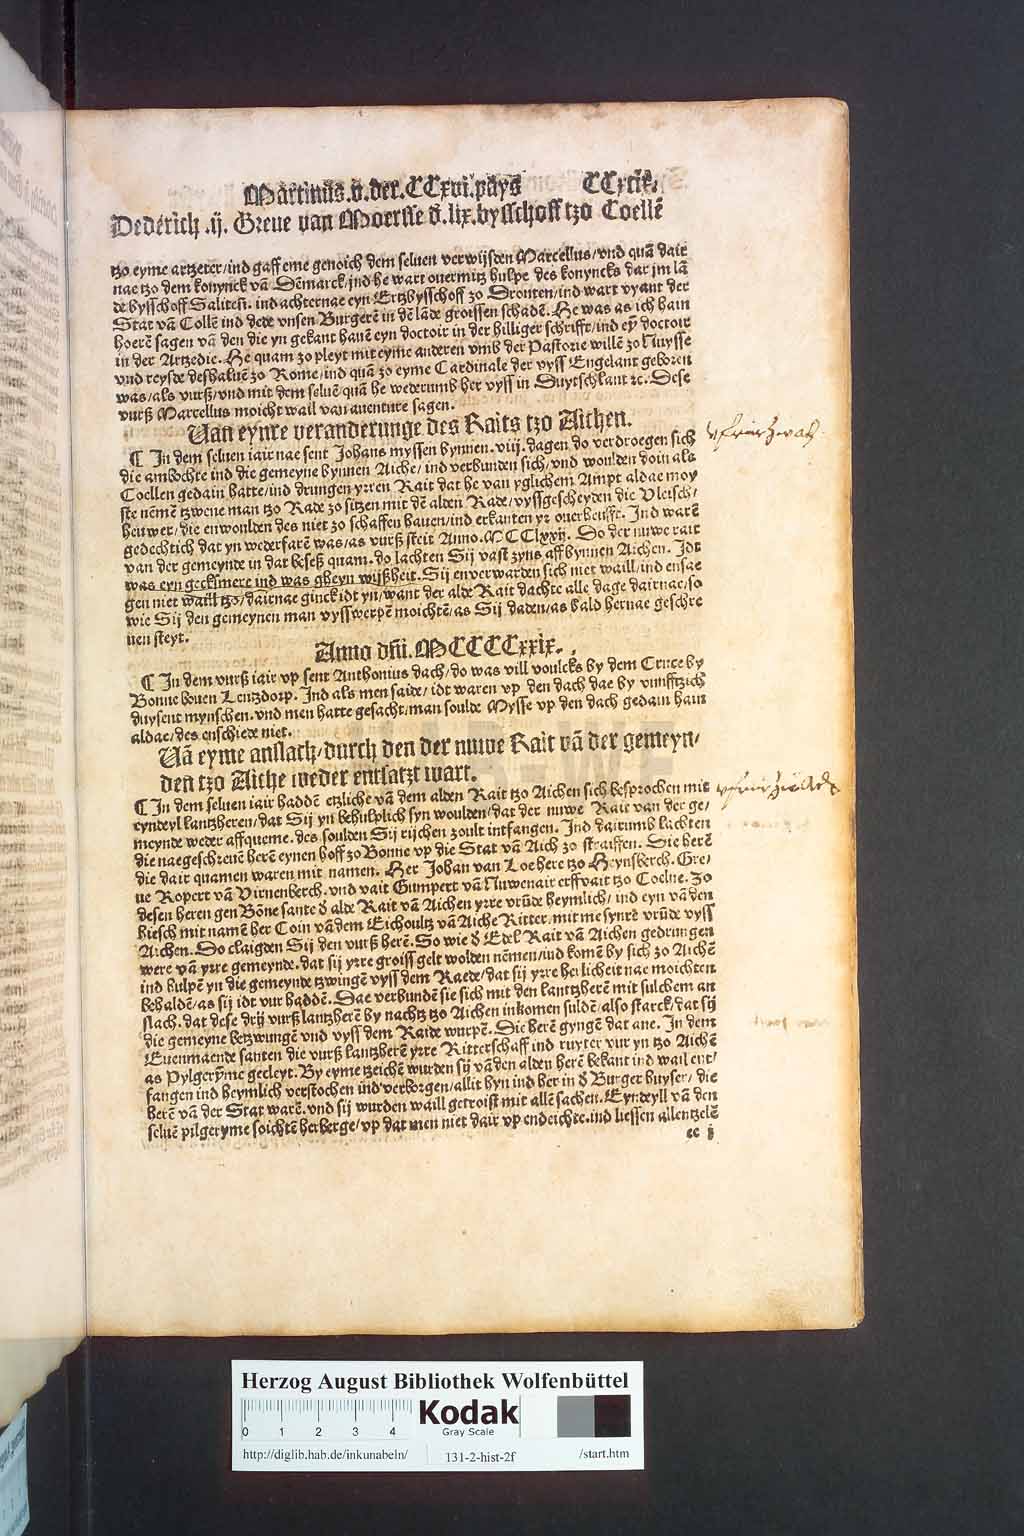 Martinus.v.der.CCxvi.pays CCxcix.
Dederich .ij. Greue van Moersse d̕.lix.bysschoff tzo Coellē
tzo eyme artzeter/ind gaff eme genoich dem seluen verwijsden Marcellus/vnd quā dair
nae tzo dem konynck vā Dēmarck/ind he wart ouermitz hulpe des konyncks dar jm lā
de bysschoff Saliteñ. ind achternae eyn Ertzbysschoff zo Dronten/ind wart vyant der
Stat vā Collē ind dede vnsen Burgerē in dē lāde groissen schadē. He was as ich hain
hoerē sagen vā den die yn gekant hauē eyn doctoir in der hilliger schrifft/ind eyn̄ doctoir
in der Artzedie. He quam zo pleyt mit eyme anderen vmb der Pastorie willē zo Nuysse
vnd reysde deshaluē zo Rome/ind quā zo eyme Cardinale der vyss Engelant geboren
was/als vurß/vnd mit dem seluē quā he wederumb her vyss in Duytschlant ⁊c. Dese
vurß Marcellus moicht wail van auenture sagen.
Van eynre veranderunge des Raits tzo Aichen.
¶ In dem seluen iair nae sent Johans myssen bynnen .viij. dagen do verdroegen sich
die ambochte ind die gemeyne bynnen Aiche/ind verbunden sich/vnd woulden doin als
Coellen gedain hatte/ind drungen yrren Rait dat he van yglichem Ampt aldae moy
ste nēmē tzwene man tzo Rade zo sitzen mit dē alden Rade/vyssgescheyden die Vleisch/
heuwer/die enwoulden des niet zo schaffen hauen/ind erkanten yr ouerheufft. Ind warē
gedechtich dat yn wederfarē was/as vurß steit Anno.MCCClxxij. Do der nuwe rait
van der gemeynde in dat beseß quam. do lachten Sij vast zyns aff bynnen Aichen. Idt
was eyn geckmere ind was gheyn wijßheit. Sij enverwarden sich niet waill/ind ensae
gen niet waill tzo/dairnae ginck idt yn/want der alde Rait dachte alle dage dairnae/so
wie Sij den gemeynen man vyssworpē moichtē/as Sij daden/as bald hernae geschre
uen steyt.
Anno dñi. MCCCCxxix.
¶ In dem vurß iair vp sent Anthonius dach/do was vill voulcks by dem Cruce by
Bonne bouen Lentzdorp. Ind als men saide/idt waren vp den dach dae by vunfftzich
duysent mynschen. vnd men hatte gesacht/man soulde Mysse vp den dach gedain hain
aldae/des enschiede niet.
Vā eyme anslach/durch den der nuwe Rait vā der gemeyn/
den tzo Aiche weder entsatzt wart.
¶ In dem seluen iair haddē etzliche vā dem alden Rait tzo Aichen sich besprochen mit
eyndeyl lantzheren/dat Sij yn behulplich syn woulden/dat der nuwe Rait van der ge/
meynde weder affqueme. des soulden Sij rijchen zoult intfangen. Ind dairumb lachten
die naegeschreuē herē eynen hoff zo Bonne vp die Stat vā Aich zo straiffen. Die herē
die dair quamen waren mit namen. Her Johan van Loe here tzo Heynsberch. Gre/
ue Ropert vā Virnenberch. vnd vait Gumpert vā Nuwenair erffvait tzo Coelne. Zo
desen heren gen Bōne sante d̕ alde Rait vā Aichen yrre vrūde heymlich/ind eyn vā den
hiesch mit namē her Coin vā dem Eichoultz vā Aiche Ritter. mit me synre vrūde vyss
Aichen. Do claigden Sij den vurß herē. So wie d̕ Edel Rait vā Aichen gedrungen
were vā yrre gemeynde. dat sij yrre groiss gelt wolden nēmen/ind komē by sich zo Aichē
ind hulpē yn die gemeynde tzwingē vyss dem Raede/dat sij yrre herlicheit nae moichten
behaldē/as sij idt vur haddē. Dae verbundē sie sich mit den lantzherē mit sulchem an
slach. dat dese drij vurß lantzherē by nachtz tzo Aichen inkomen suldē/also starck/dat sij
die gemeyne betzwungē vnd vyss dem Raide wurpē. Die herē gyngē dat ane. In dem
Euenmaende santen die vurß lantzherē yrre Ritterschaff ind ruyter vur yn tzo Aichē
as Pylgerȳme gecleyt. By eyme tzeichē wurden sij vā den alden herē bekant ind wail ent/
fangen ind heymlich verstochen ind verborgen/allit hyn ind her in d̕ Burger huyser/die
herē vā der Stat warē. vnd sij wurden waill getroist mit allē sachen. Eyndeyll vā den
seluē pilgeryme soichtē herberge/vp dat men niet dair vp endeichte. ind liessen allentzelē
cc j
Herzog August Bibliothek Wolfenbüttel
0 1 2 3 4
Kodak
Gray Scale
http://diglib.hab.de/inkunabeln/ 131-2-hist-2f /start.htm